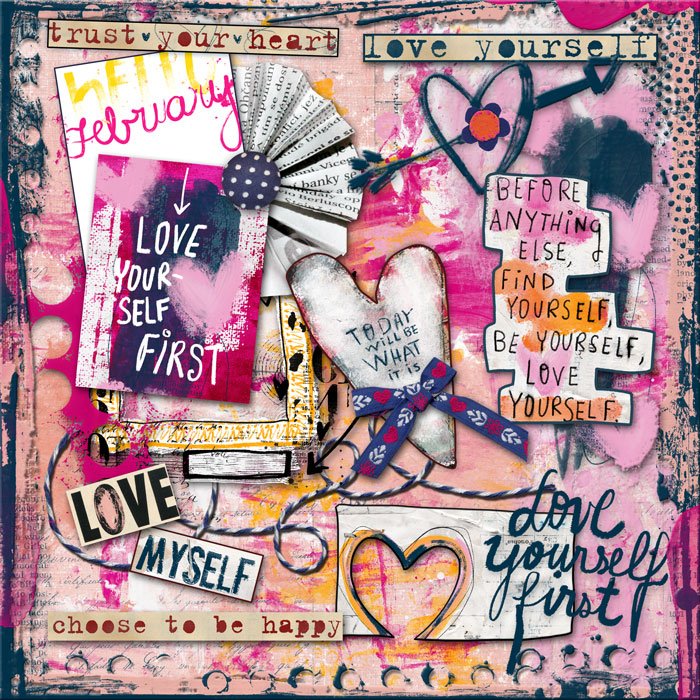 trust your heart
love yourself
HELLO
February
LOVE
YOUR-
SELF
FIRST
BEFORE
ANYTHING
ELSE,
FIND
YOURSELF,
BE YOURSELF,
LOVE
YOURSELF.
TODAY
WILL BE
WHAT
IT IS
LOVE
MYSELF
Love
yourself
first
choose to be happy